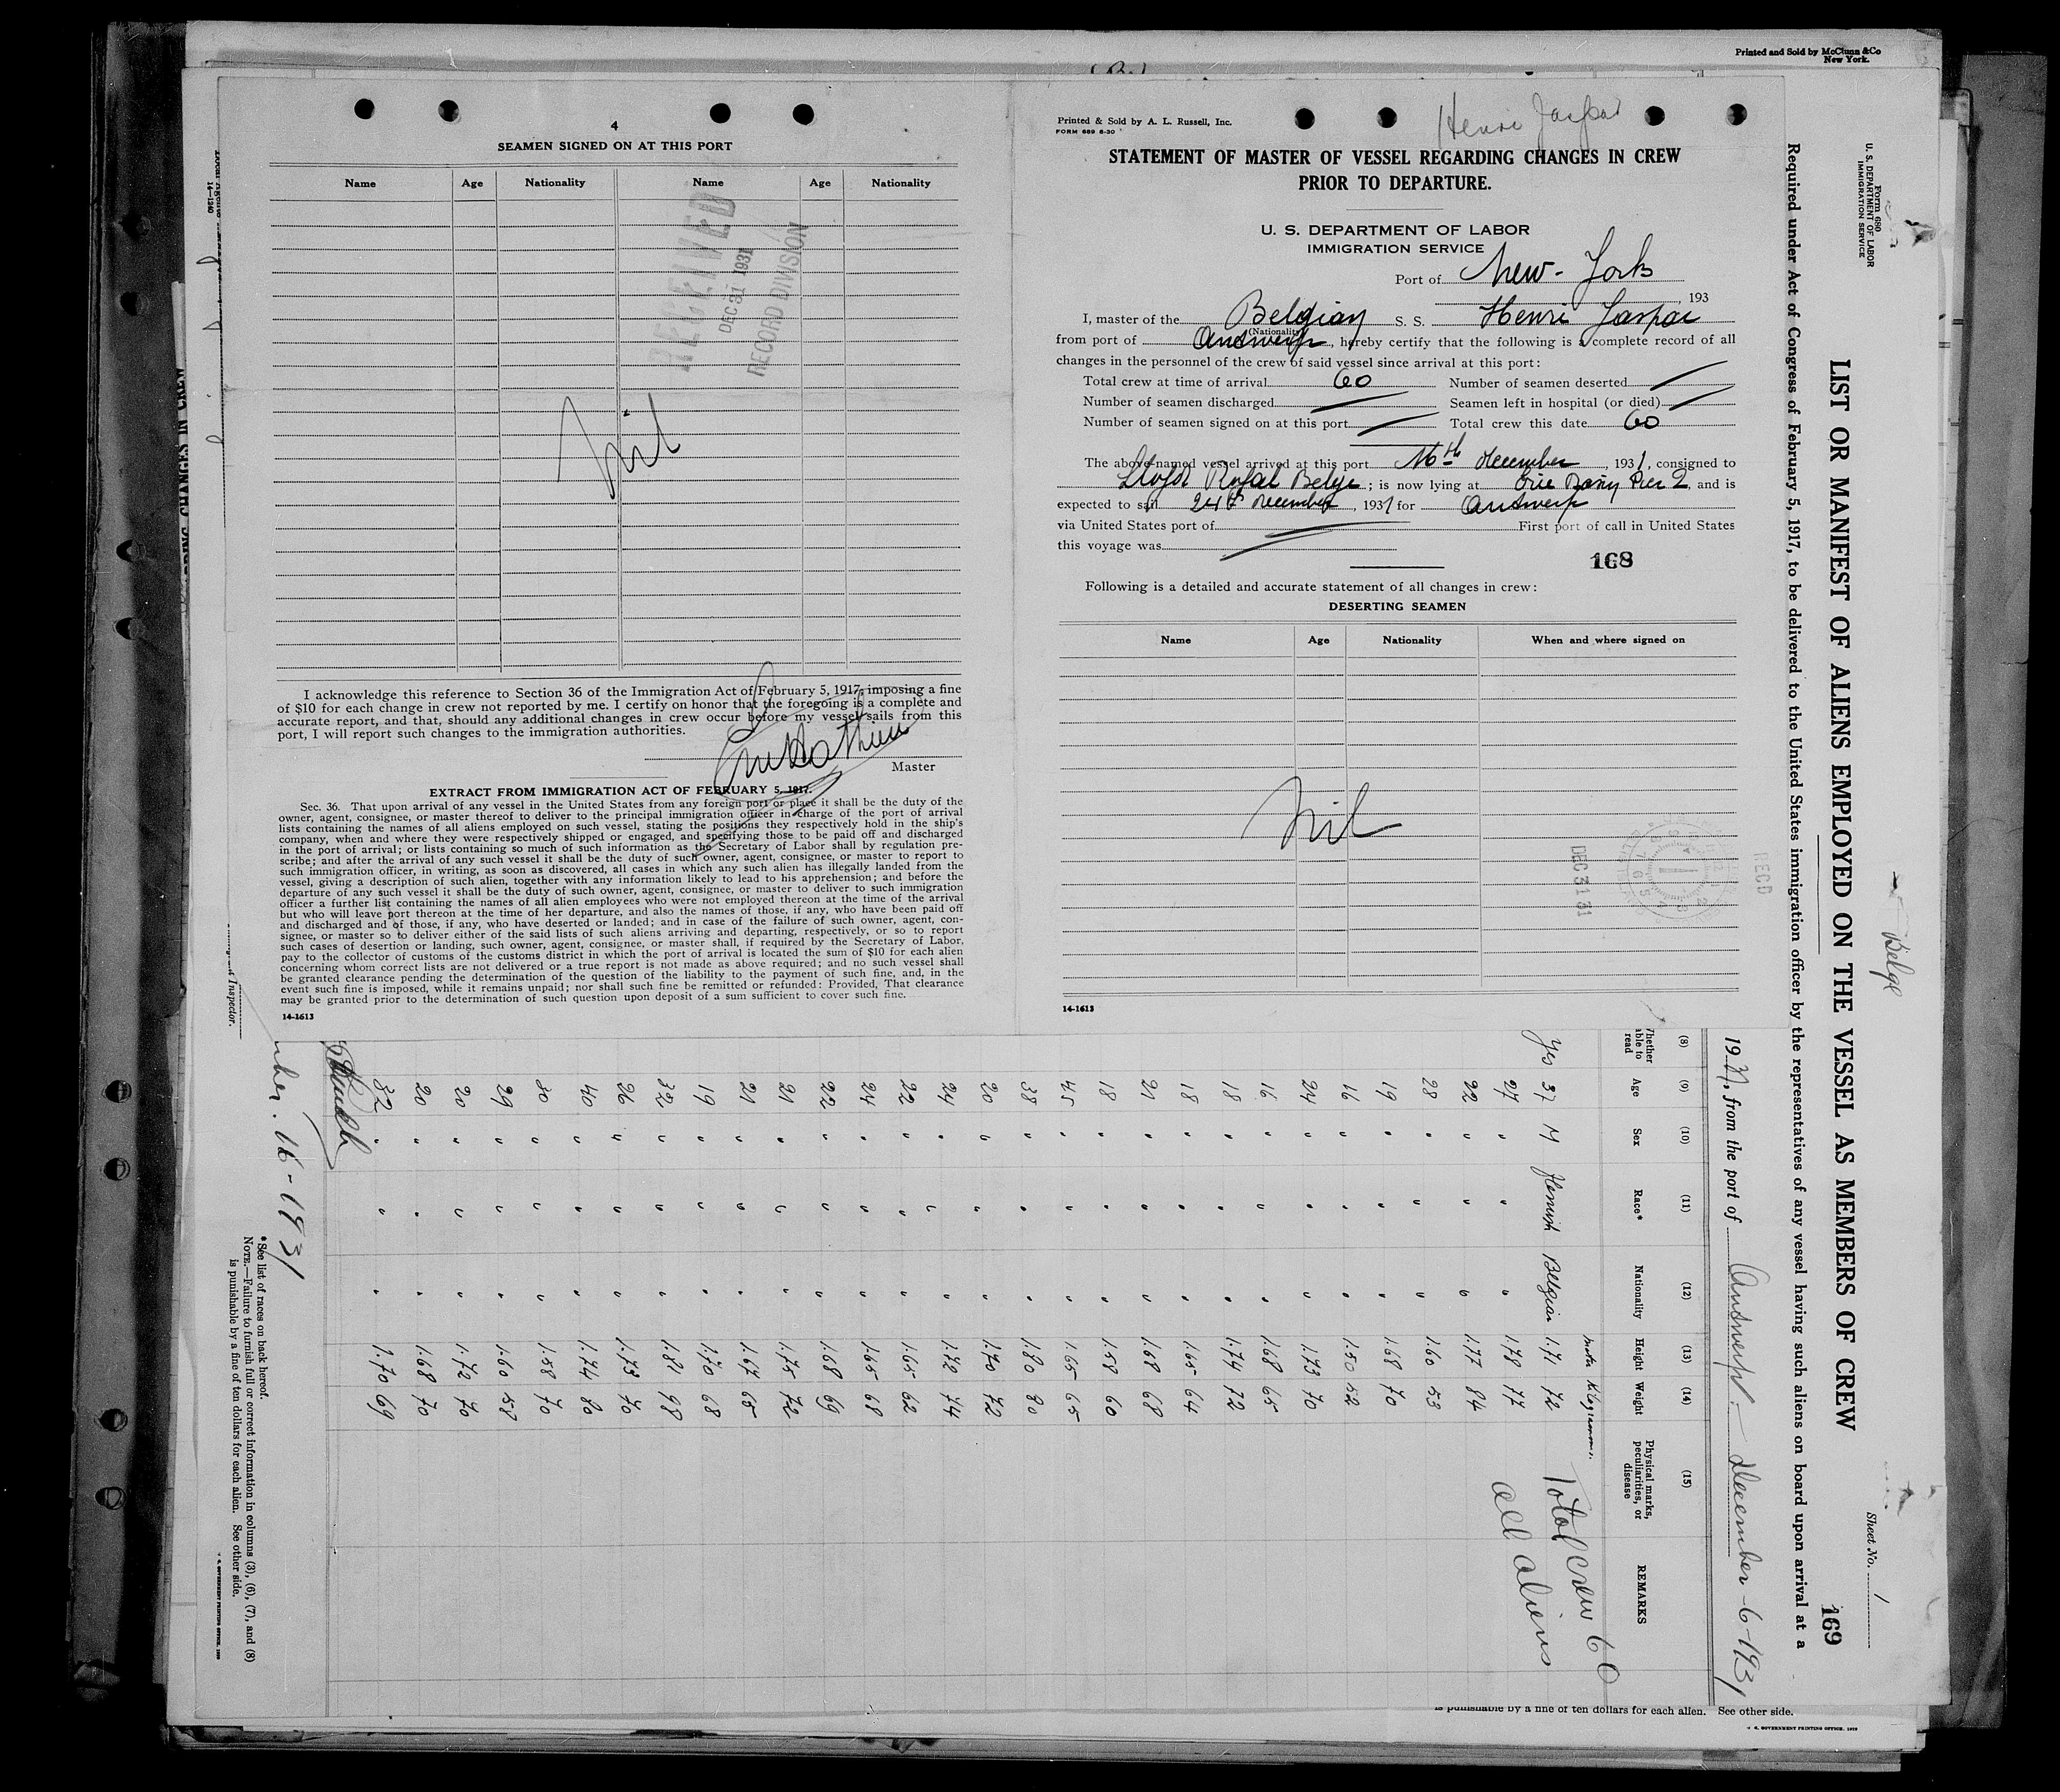 Printed and Sold by McClunn & Co
New York.
4
SEAMEN SIGNED ON AT THIS PORT
Name Age Nationality Name Age Nationality
RECEIVED
DEC 31 1931
RECORD DIVISION
Nil
I acknowledge this reference to Section 36 of the Immigration Act of February 5, 1917, imposing a fine
of $10 for each change in crew not reported by me. I certify on honor that the foregoing is a complete and
accurate report, and that, should any additional changes in crew occur before my vessel sails from this
port, I will report such changes to the immigration authorities.
Master
EXTRACT FROM IMMIGRATION ACT OF FEBRUARY 5, 1917.
Sec. 36. That upon arrival of any vessel in the United States from any foreign port or place it shall be the duty of the
owner, agent, consignee, or master thereof to deliver to the principal immigration officer in charge of the port of arrival
lists containing the names of all aliens employed on such vessel, stating the positions they respectively hold in the ship's
company, when and where they were respectively shipped or engaged, and specifying those to be paid off and discharged
in the port of arrival; or lists containing so much of such information as the Secretary of Labor shall by regulation pre-
scribe; and after the arrival of any such vessel it shall be the duty of such owner, agent, consignee, or master to report to
such immigration officer, in writing, as soon as discovered, all cases in which any such alien has illegally landed from the
vessel, giving a description of such alien, together with any information likely to lead to his apprehension; and before the
departure of any such vessel it shall be the duty of such owner, agent, consignee, or master to deliver to such immigration
officer a further list containing the names of all alien employees who were not employed thereon at the time of the arrival
but who will leave port thereon at the time of her departure, and also the names of those, if any, who have been paid off
and discharged and of those, if any, who have deserted or landed; and in case of the failure of such owner, agent, con-
signee, or master so to deliver either of the said lists of such aliens arriving and departing, respectively, or so to report
such cases of desertion or landing, such owner, agent, consignee, or master shall, if required by the Secretary of Labor,
pay to the collector of customs of the customs district in which the port of arrival is located the sum of $10 for each alien
concerning whom correct lists are not delivered or a true report is not made as above required; and no such vessel shall
be granted clearance pending the determination of the question of the liability to the payment of such fine, and, in the
event such fine is imposed, while it remains unpaid; nor shall such fine be remitted or refunded: Provided, That clearance
may be granted prior to the determination of such question upon deposit of a sum sufficient to cover such fine.
14-1613
Printed & Sold by A. L. Russell, Inc.
FORM 689 6-30
Henri Jaspar
STATEMENT OF MASTER OF VESSEL REGARDING CHANGES IN CREW
PRIOR TO DEPARTURE.
U. S. DEPARTMENT OF LABOR
IMMIGRATION SERVICE
Port of New-York
, 193
I, master of the Belgian S. S. Henri Jaspar
(Nationality)
from port of Andwerp, hereby certify that the following is a complete record of all
changes in the personnel of the crew of said vessel since arrival at this port:
Total crew at time of arrival 60 Number of seamen deserted
Number of seamen discharged Seamen left in hospital (or died)
Number of seamen signed on at this port Total crew this date 60
The above-named vessel arrived at this port 16th december, 1931, consigned to
Lloyd Royal Belge; is now lying at Pier 2, and is
expected to sail 24th december, 1931 for Andwerp
via United States port of First port of call in United States
this voyage was
168
Following is a detailed and accurate statement of all changes in crew:
DESERTING SEAMEN
Name Age Nationality When and where signed on
Nil
DEC 31 31
REC'D
14-1613
Form 680
U. S. DEPARTMENT OF LABOR
IMMIGRATION SERVICE
Belge
Sheet No. 1
169
LIST OR MANIFEST OF ALIENS EMPLOYED ON THE VESSEL AS MEMBERS OF CREW
Required under Act of Congress of February 5, 1917, to be delivered to the United States immigration officer by the representatives of any vessel having such aliens on board upon arrival at a
1931, from the port of Andwerp. december-6-1931
(8) (9) (10) (11) (12) (13) (14) (15)
Whether able to read Age Sex Race* Nationality Height Weight Physical marks, peculiarities, or disease REMARKS
Kilogrammes.
Yes 37 M Flemish Belgian 1.71 72 Total crew 60
27 " " " 1.78 77 all aliens
22 " " " 1.77 84
28 " " " 1.60 53
19 " " " 1.68 70
16 " " " 1.50 52
24 " " " 1.73 70
16 " " " 1.68 65
18 " " " 1.74 72
18 " " " 1.65 64
21 " " " 1.68 68
18 " " " 1.58 60
45 " " " 1.65 65
38 " " " 1.80 80
20 " " " 1.70 72
24 " " " 1.72 74
22 " " " 1.65 62
24 " " " 1.65 68
22 " " " 1.68 69
21 " " " 1.75 72
21 " " " 1.67 65
19 " " " 1.70 68
32 " " " 1.81 98
26 " " " 1.73 70
40 " " " 1.74 80
30 " " " 1.58 70
29 " " " 1.60 58
20 " " " 1.72 70
20 " " " 1.68 70
32 " " " 1.70 69
16-1931
*See list of races on back hereof.
NOTE.—Failure to furnish full or correct information in columns (3), (6), (7), and (8)
is punishable by a fine of ten dollars for each alien. See other side.
Inspector.
14-1240
CHANGES IN CREW
is punishable by a fine of ten dollars for each alien. See other side.
U. S. GOVERNMENT PRINTING OFFICE